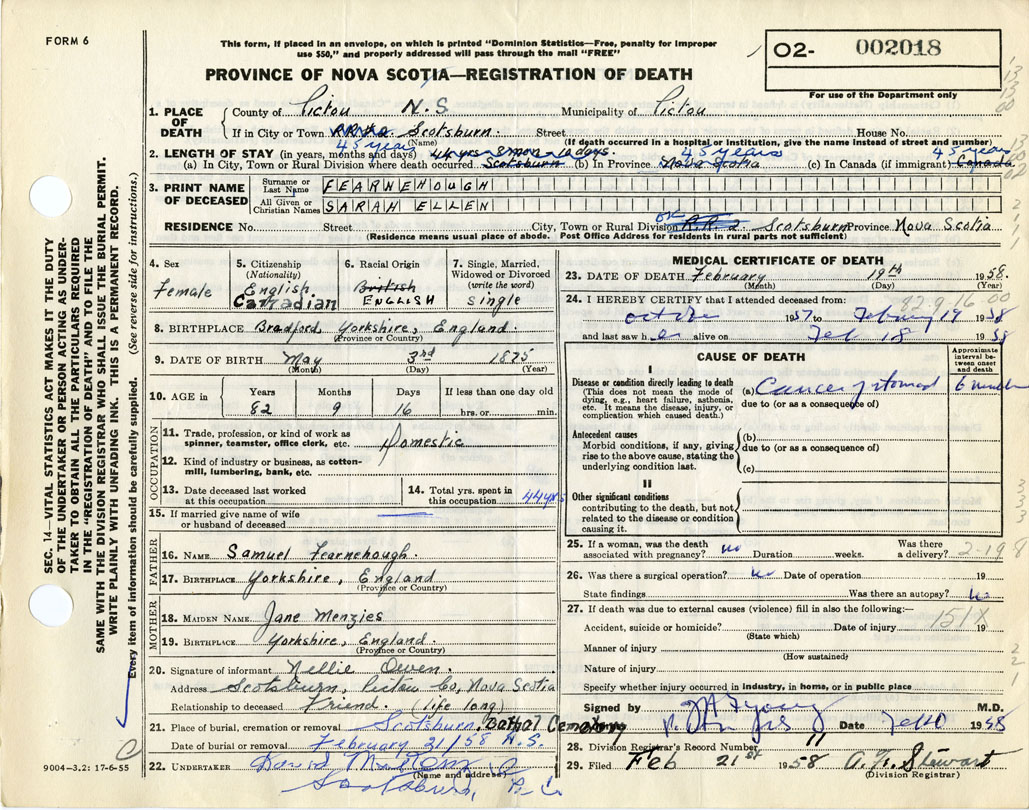 FORM 6
This form, if placed in an envelope, on which is printed "Dominion Statistics—Free, penalty for improper
use $50," and properly addressed will pass through the mail "FREE"
O2- 002018
For use of the Department only
PROVINCE OF NOVA SCOTIA—REGISTRATION OF DEATH
SEC. 14—VITAL STATISTICS ACT MAKES IT THE DUTY
OF THE UNDERTAKER OR PERSON ACTING AS UNDER-
TAKER TO OBTAIN ALL THE PARTICULARS REQUIRED
IN THE "REGISTRATION OF DEATH" AND TO FILE THE
SAME WITH THE DIVISION REGISTRAR WHO SHALL ISSUE THE BURIAL PERMIT.
WRITE PLAINLY WITH UNFADING INK. THIS IS A PERMANENT RECORD.
Every item of information should be carefully supplied. (See reverse side for instructions.)
1. PLACE OF DEATH
County of Pictou N.S Municipality of Pictou
If in City or Town Scotsburn. Street House No.
(Name) (If death occurred in a hospital or institution, give the name instead of street and number)
45 years 45 years 45 years
2. LENGTH OF STAY (in years, months and days) 44 yrs 8 mon 10 days.
(a) In City, Town or Rural Division where death occurred Scotsburn (b) In Province Nova Scotia (c) In Canada (if immigrant) Canada
3. PRINT NAME OF DECEASED
Surname or Last Name FEARNEHOUGH
All Given or Christian Names SARAH ELLEN
RESIDENCE No. Street City, Town or Rural Division R.R.2 Scotsburn Province Nova Scotia
(Residence means usual place of abode. Post Office Address for residents in rural parts not sufficient)
4. Sex
Female
5. Citizenship
(Nationality)
English
Canadian
6. Racial Origin
British
ENGLISH
7. Single, Married,
Widowed or Divorced
(write the word)
Single
8. BIRTHPLACE Bradford, Yorkshire, England.
(Province or Country)
9. DATE OF BIRTH May 3rd 1875
(Month) (Day) (Year)
10. AGE in Years Months Days If less than one day
82 9 16 hrs. or min.
OCCUPATION
11. Trade, profession, or kind of work as
spinner, teamster, office clerk, etc. Domestic
12. Kind of industry or business, as cotton-
mill, lumbering, bank, etc.
13. Date deceased last worked
at this occupation
14. Total yrs. spent in
this occupation 44 yrs
15. If married give name of wife
or husband of deceased
FATHER
16. NAME Samuel Fearnehough.
17. BIRTHPLACE Yorkshire, England
(Province or Country)
MOTHER
18. MAIDEN NAME Jane Menzies
19. BIRTHPLACE Yorkshire, England.
(Province or Country)
20. Signature of informant Nellie Owen.
Address Scotsburn, Pictou Co, Nova Scotia
Relationship to deceased Friend. (life long)
21. Place of burial, cremation or removal Scotsburn Bethel Cemetery
Date of burial or removal February 21/58 N.S.
22. UNDERTAKER David
(Name and address)
Scotsburn,
9004—3.2: 17-6-55
MEDICAL CERTIFICATE OF DEATH
23. DATE OF DEATH February 19th 1958.
(Month) (Day) (Year)
82 9 16 00
24. I HEREBY CERTIFY that I attended deceased from:
october 1957 to February 19 1958
and last saw her alive on Feb 18 1958
CAUSE OF DEATH
Approximate
interval be-
tween onset
and death
I
Disease or condition directly leading to death
(This does not mean the mode of
dying, e.g., heart failure, asthenia,
etc. It means the disease, injury, or
complication which caused death.)
(a) Cancer of stomach 6 months
due to (or as a consequence of)
Antecedent causes
Morbid conditions, if any, giving
rise to the above cause, stating the
underlying condition last.
(b)
due to (or as a consequence of)
(c)
II
Other significant conditions
contributing to the death, but not
related to the disease or condition
causing it.
25. If a woman, was the death
associated with pregnancy? no Duration weeks. Was there
a delivery? 2-198
26. Was there a surgical operation? no Date of operation 19
State findings Was there an autopsy? no
27. If death was due to external causes (violence) fill in also the following:—
Accident, suicide or homicide? Date of injury 151X 19
(State which)
Manner of injury
(How sustained)
Nature of injury
Specify whether injury occurred in industry, in home, or in public place
Signed by M.D.
Date 1958
28. Division Registrar's Record Number 11
29. Filed Feb 21st 1958 A. F. Stewart
(Division Registrar)